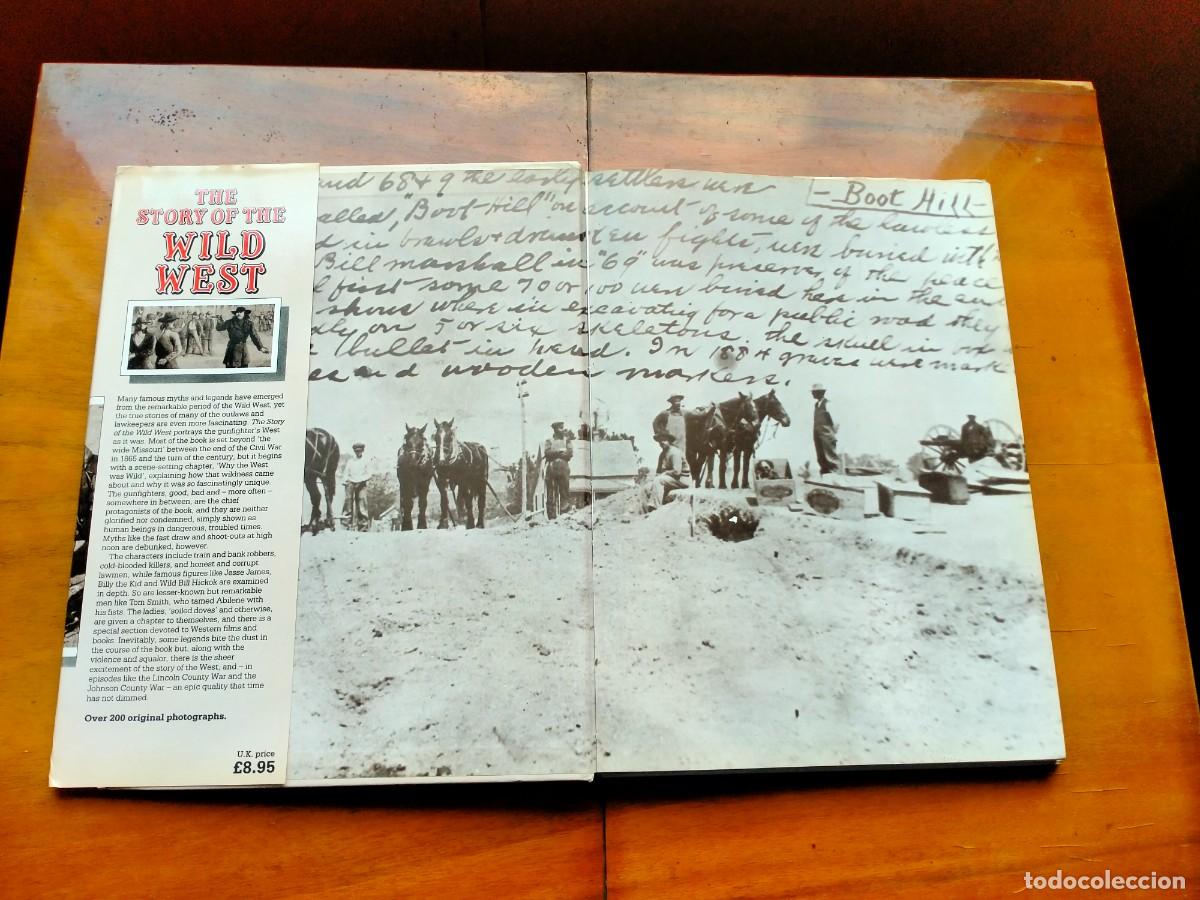 THE
STORY OF THE
WILD
WEST
Many famous myths and legends have emerged
from the remarkable period of the Wild West, yet
the true stories of many of the outlaws and
lawkeepers are even more fascinating. The Story
of the Wild West portrays the gunfighter's West
as it was. Most of the book is set beyond 'the
wide Missouri' between the end of the Civil War
in 1865 and the turn of the century, but it begins
with a scene-setting chapter, 'Why the West
was Wild', explaining how that wildness came
about and why it was so fascinatingly unique.
The gunfighters, good, bad and – more often –
somewhere in between, are the chief
protagonists of the book, and they are neither
glorified nor condemned, simply shown as
human beings in dangerous, troubled times.
Myths like the fast draw and shoot-outs at high
noon are debunked, however.
The characters include train and bank robbers,
cold-blooded killers, and honest and corrupt
lawmen, while famous figures like Jesse James,
Billy the Kid and Wild Bill Hickok are examined
in depth. So are lesser-known but remarkable
men like Tom Smith, who tamed Abilene with
his fists. The ladies, 'soiled doves' and otherwise,
are given a chapter to themselves, and there is a
special section devoted to Western films and
books. Inevitably, some legends bite the dust in
the course of the book but, along with the
violence and squalor, there is the sheer
excitement of the story of the West, and – in
episodes like the Lincoln County War and the
Johnson County War – an epic quality that time
has not dimmed.
Over 200 original photographs.
U.K. price
£8.95
- Boot Hill -
and 68 + 9 the early settlers were
alled, "Boot-Hill" on account of some of the lawless
d in brawls + drunken fights, were buried with
Bill marshall in "69" was preserver of the peace
first some 70 or 100 were buried here in the
shows where in excavating for a public road they
on 5 or six skeletons, the skull in
bullet in head. In 1884 graves were mark
and wooden markers.
todocoleccion